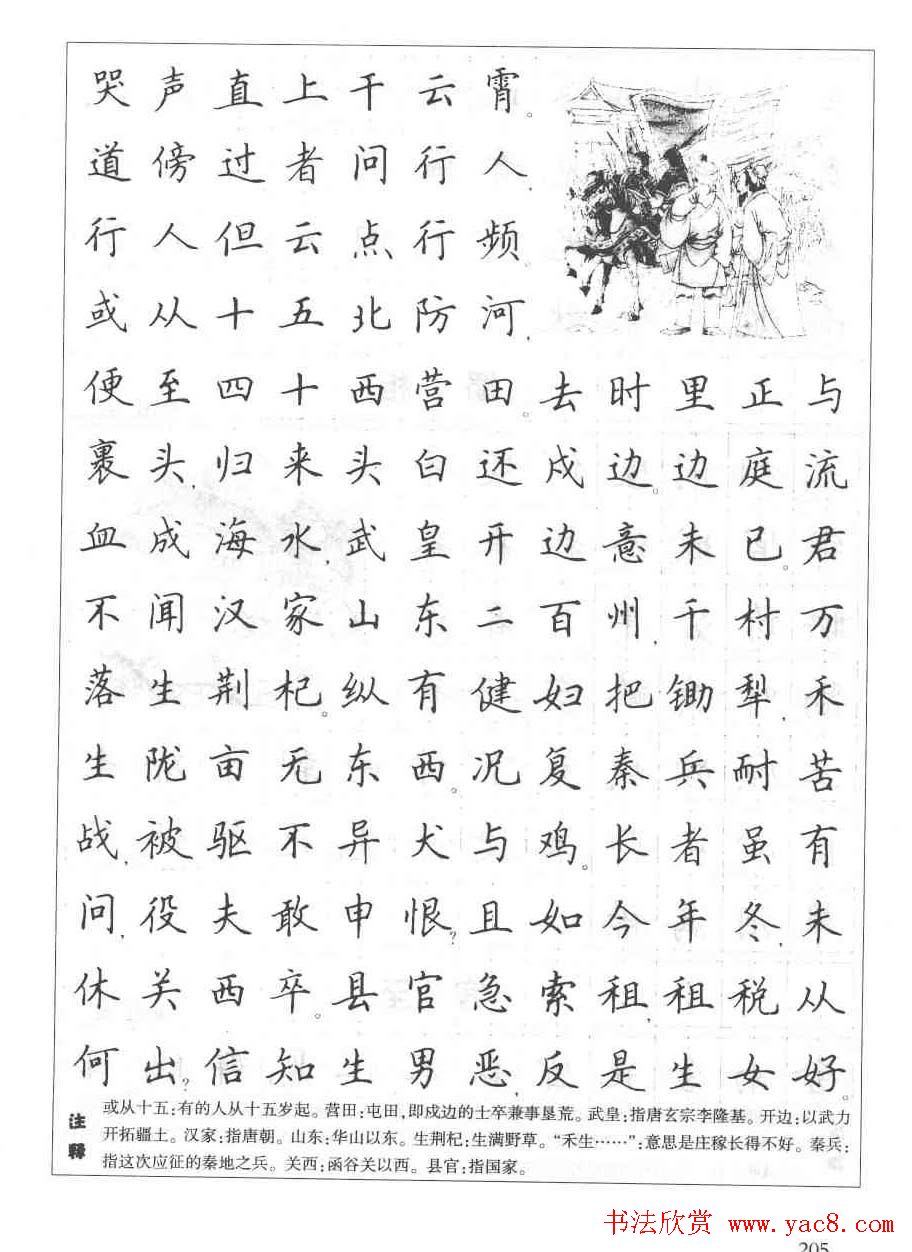 哭声直上干云霄。
道傍过者问行人,
行人但云点行频。
或从十五北防河,
便至四十西营田。去时里正与
裹头,归来头白还戍边。边庭流
血成海水,武皇开边意未已。君
不闻汉家山东二百州,千村万
落生荆杞。纵有健妇把锄犁,禾
生陇亩无东西。况复秦兵耐苦
战,被驱不异犬与鸡。长者虽有
问,役夫敢申恨?且如今年冬,未
休关西卒。县官急索租,租税从
何出?信知生男恶,反是生女好。
注释
或从十五:有的人从十五岁起。营田:屯田,即戍边的士卒兼事垦荒。武皇:指唐玄宗李隆基。开边:以武力
开拓疆土。汉家:指唐朝。山东:华山以东。生荆杞:生满野草。“禾生……”:意思是庄稼长得不好。秦兵:
指这次应征的秦地之兵。关西:函谷关以西。县官:指国家。
书法欣赏 www.yac8.com
205